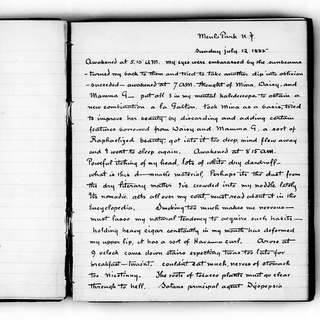 Menlo Park N.J
Sunday July 12 1885
Awakened at 5.15 A.M. my eyes were embarassed by the sunbeams
- turned my back to them and tried to take another dip into oblivion
- succeeded - awakened at 7 A.M. thought of Mina, Daisy, and
Mamma G - put all 3 in my mental kaleidescope to obtain a
new combination a la Galton. took Mina as a basis, tried
to improve her beauty by discarding and adding certain
features borrowed from Daisy and Mamma G. a sort of
Raphaelized beauty, got into it too deep, mind flew away
and I went to sleep again. Awakened at 8 15 AM.
Powerful itching of my head, lots of white dry dandruff -
what is this d-mnable material, Perhaps its the dust from
the dry literary matter I've crowded into my noddle lately
Its nomadic. gets all over my coat, must read about it in the
Encyclopedia. Smoking too much makes me nervous -
must lasso my natural tendency to acquire such habits -
holding heavy cigar constantly in my mouth has deformed
my upper lip, it has a sort of Havanna curl. Arose at
9 oclock came down stairs expecting twas too late for
breakfast - twasn't. couldnt eat much, nerves of stomach
too nicotinny. The roots of tobacco plants must go clear
through to hell. Satans principal agent Dyspepsia